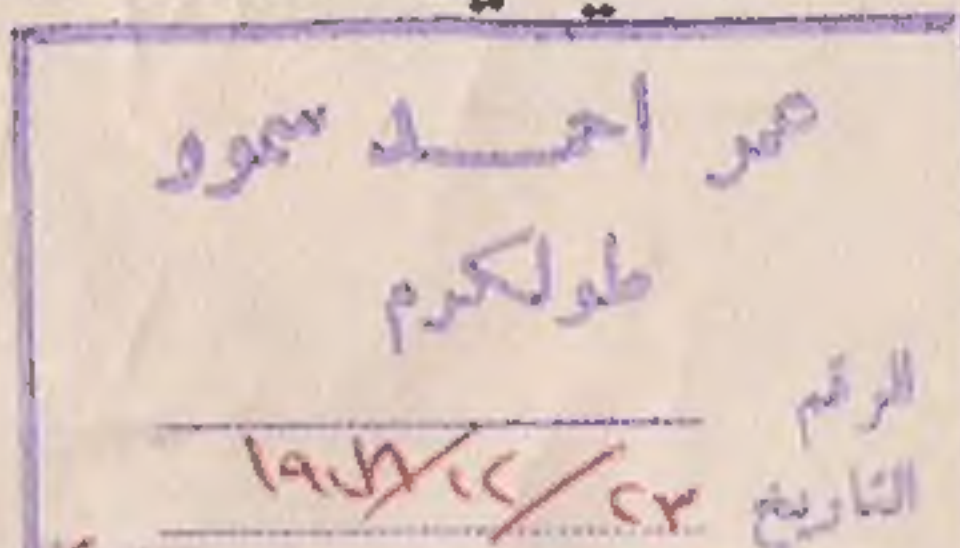 عمر احمد سمور
طولكرم
الرقم
التاريخ ٢٣/١٢/